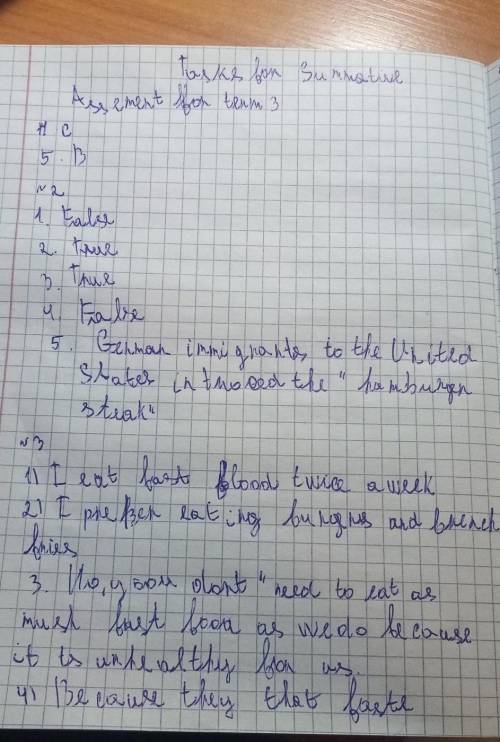 Tasks for Summative
Assement for term 3
4 C
5. B
№2
1. False
2. True
3. True
4. False
5. German immigrants to the United
States introoed the "hamburger
steak"
№3
1) I eat fast flood twice a week
2) I prefer eating burgrs and french
fries
3. No, you don't need to eat as
much fast food as we do because
it is unhealthy for us.
4) Because they that faste